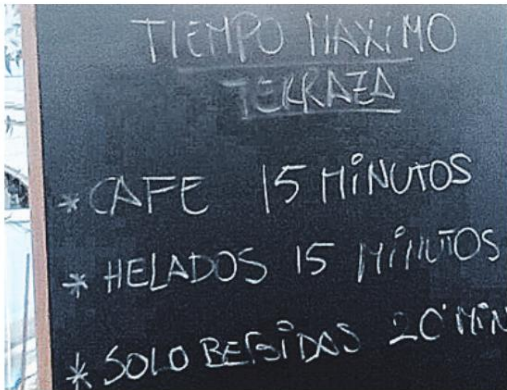 TIEMPO MAXIMO
TERRAZA
* CAFE 15 MINUTOS
* HELADOS 15 MINUTOS
* SOLO BEBIDAS 20 MIN